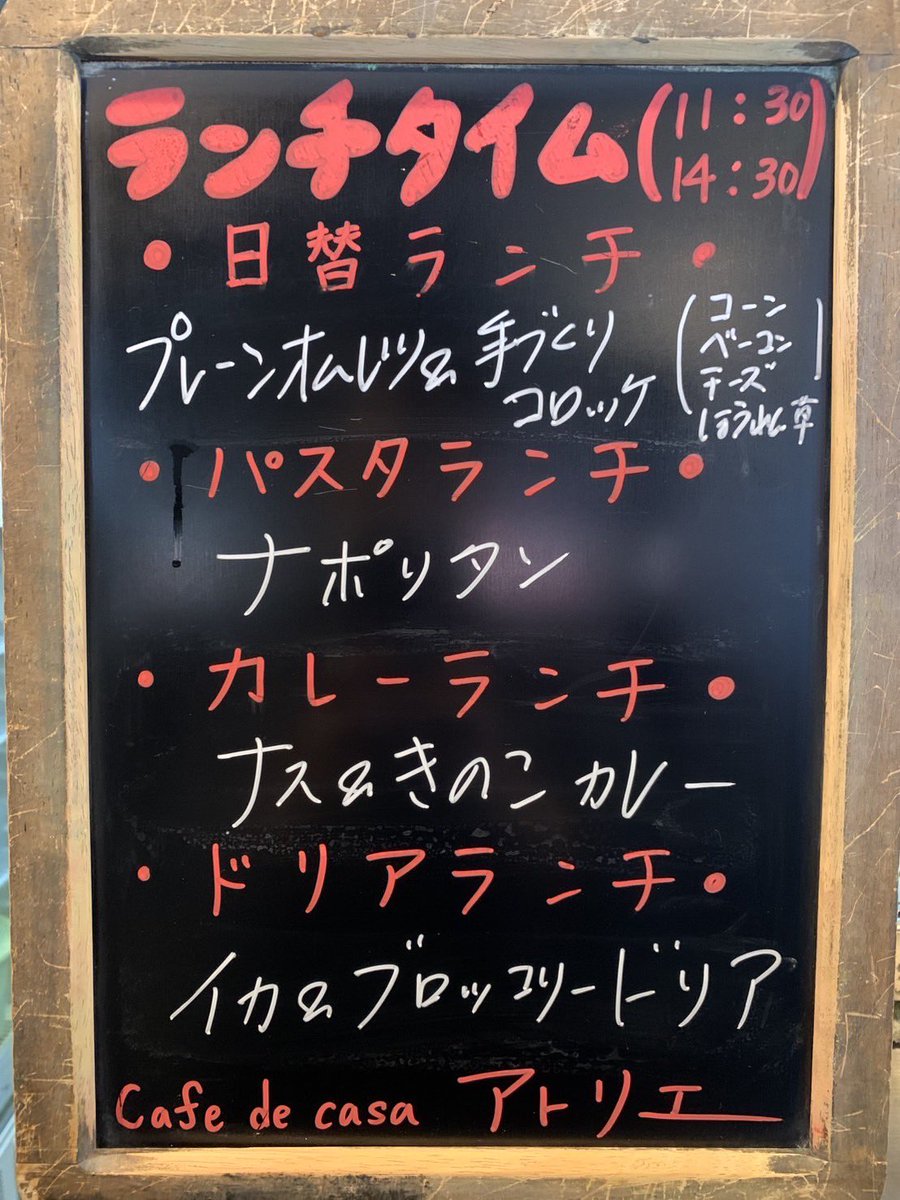 ランチタイム(11:30
14:30)
・日替ランチ・
プレーンオムレツ&手づくり
コロッケ
(コーン
ベーコン
チーズ
ほうれん草)
・パスタランチ・
ナポリタン
・カレーランチ・
ナス&きのこカレー
・ドリアランチ・
イカ&ブロッコリードリア
Cafe de casa アトリエ